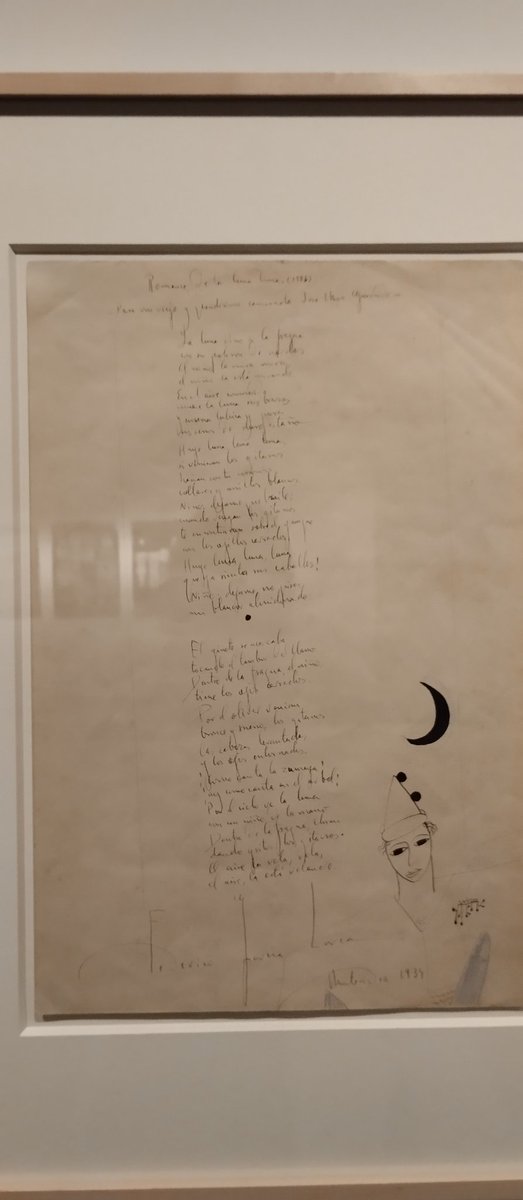 Romance de la luna luna
Para mi viejo y camarada José Mora
La luna vino a la fragua
con su polisón de nardos
El niño la mira mira
el niño la está mirando
En el aire conmovido
mueve la luna sus brazos
y enseña lúbrica y pura
sus senos de duro estaño
Huye luna, luna, luna,
si vinieran los gitanos
harían con tu corazón
collares y anillos blancos.
Niño, déjame que baile,
cuando vengan los gitanos
te encontrarán sobre el yunque
con los ojillos cerrados.
Huye luna, luna, luna
que ya siento sus caballos!
Niño, déjame, no pises
mi blancor almidonado
El jinete se acercaba
tocando el tambor del llano
Dentro de la fragua, el niño
tiene los ojos cerrados.
Por el olivar venían,
bronce y sueño, los gitanos
las cabezas levantadas,
y los ojos entornados.
¡Cómo canta la zumaya!
¡Ay como canta en el árbol!
Por el cielo va la luna
con un niño de la mano
Dentro de la fragua lloran
dando gritos los gitanos.
El aire la vela, vela,
el aire la está velando
Federico García Lorca
1934